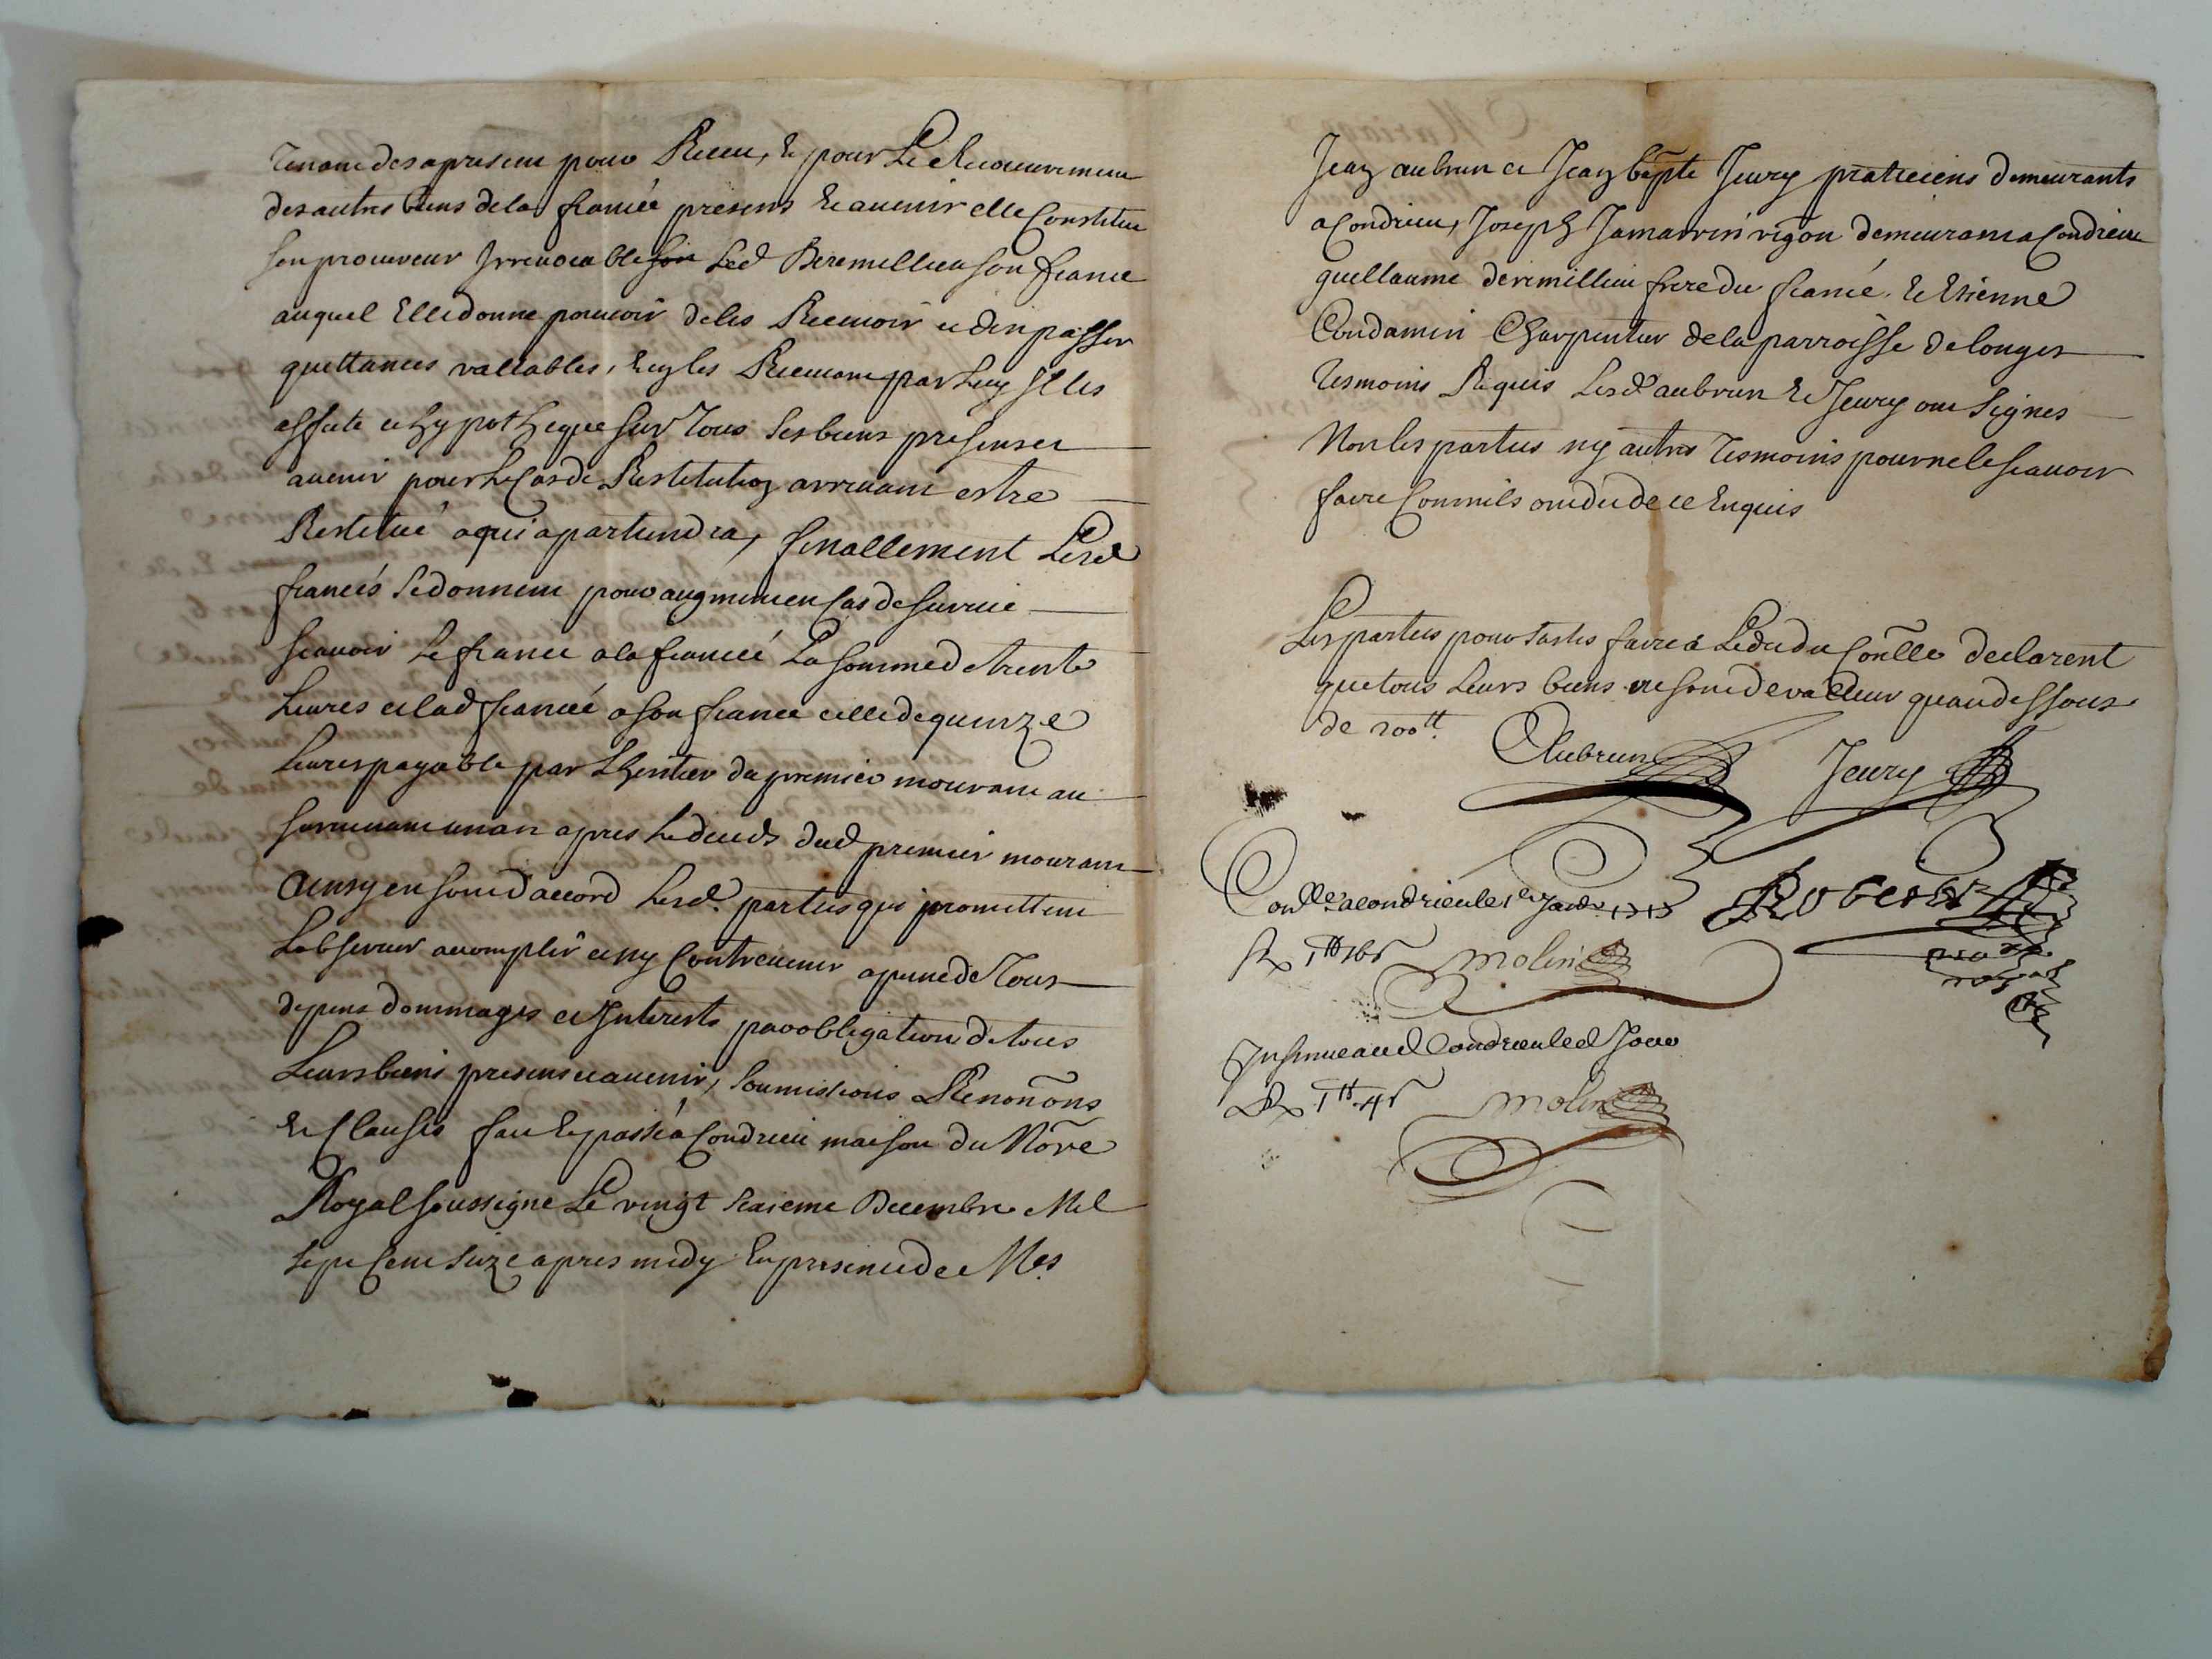 tenant des apresent pour Receu, & pour Le Recouvrement
des autres biens de lad fiancée presens & auenir elle Constitue
son procureur Irreuocable son Led Deremillieu son fiancé
auquel Elle donne pouuoir de les Receuoir et den passer
quittances vallables, & y les Receuant par Luy Il les
assure et hypotheque sur Tous ses biens presens et
auenir pour Le Cas de Restitution arriuant estre
Restitué a qui apartiendra, finallement Lesd
fiancés Se donnent pour augment en Cas de suruie
scauoir Le fiancé a la fiancée La somme de trente
Liures et lad fiancée a son fiancé celle de quinze
Liures payable par Lheritier du premier mourant au
suruiuant un an apres Le deceds dud premier mourant
Ainsy en sont daccord Lesd. parties qui promettent
Lobseruer accomplir et ny Contreuenir a peine de Tous
depens dommages et Interests par obligation de tous
Leurs biens presens et auenir, soumissions Renonõns
& Clauses fait & passé a Condrieu maison du Nõre
Royal soussigné Le vingt sixieme Decembre Mil
sept Cent Seize apres midy En presence de Mes.
Jean aubrun et Jean bapte Jeury praticiens demeurants
a Condrieu, Joseph vigõn demeurant a Condrieu
guillaume deremillieu frere du fiancé. & Etienne
Condamin Charpentier de la parroisse de longes
Tesmoins Requis Lesd aubrun & Jeury ont Signes
Non les parties ny autres Tesmoins pour ne le scauoir
faire Comm ils ont dit de ce Enquis
Les parties pour faire Le du Conlle declarent
que tous Leurs biens ne sont de valleur quau dessous
de 200tt.
Aubrun Jeury
Conlle a condrieu le 1er Janv 1717 Roberts
Rx 1tt 16s molin
nore
royal
Insinue aud Condrieu led Jour
Rx 1tt 4s molin